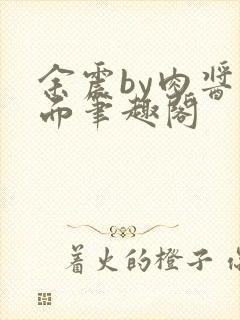 余震by肉酱
而笔趣阁
着火的橙子